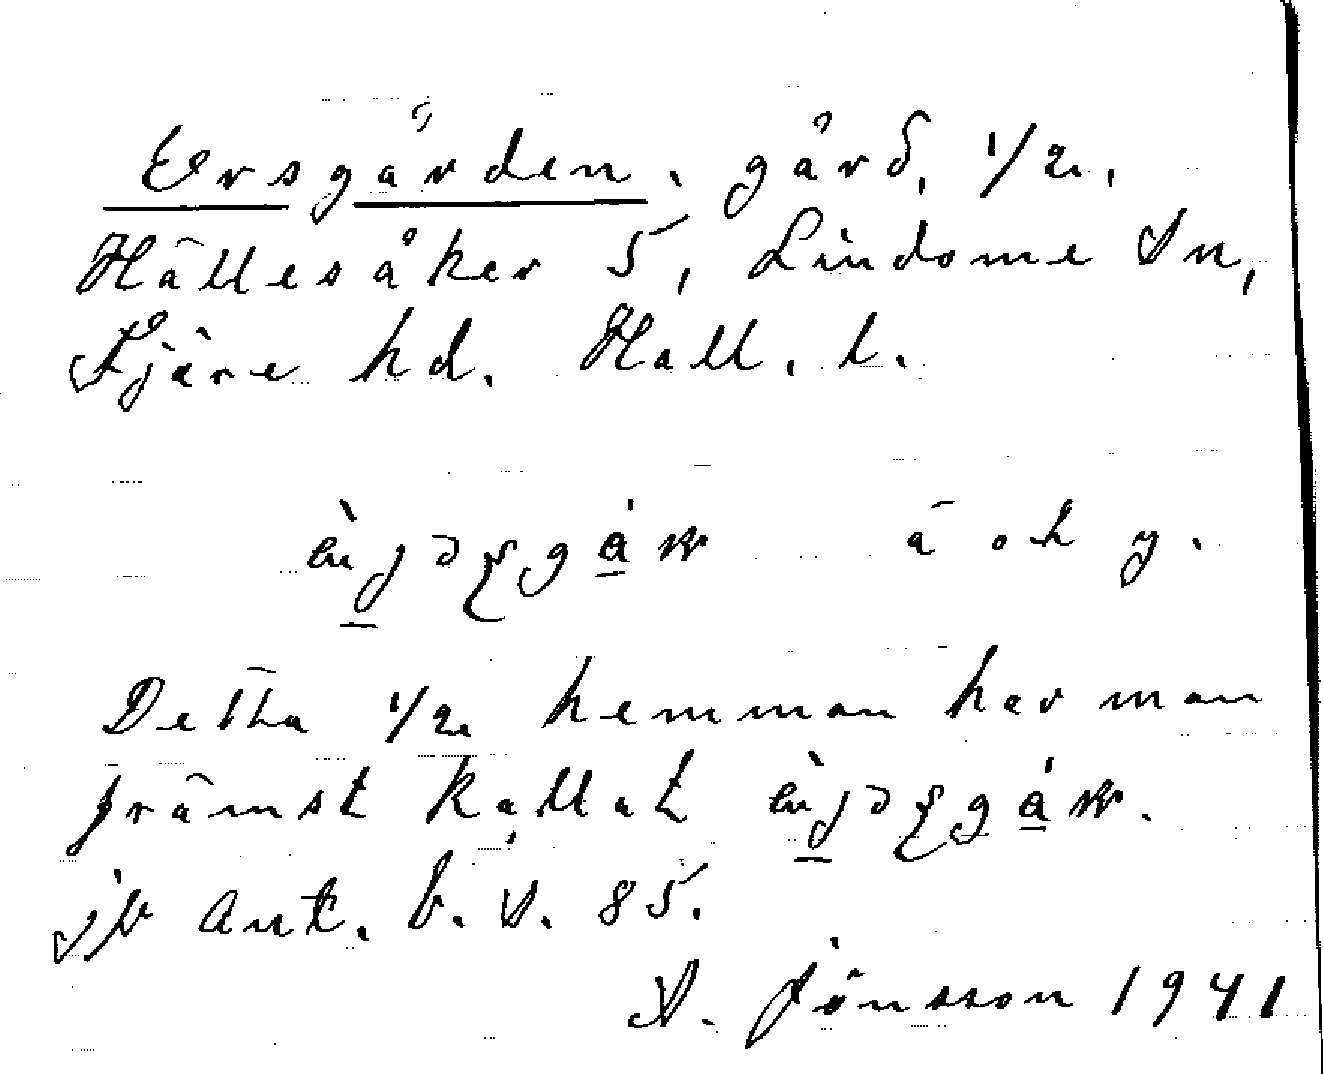 Ersgården. gård, 1/2.
Hällesåker 5, Lindome Sn,
Fjäre hd. Hall. l.
ä och y.
Detta 1/2 hemman har man
främst kallat
jfr Ant. b. S. 85.
S. Jönsson 1941